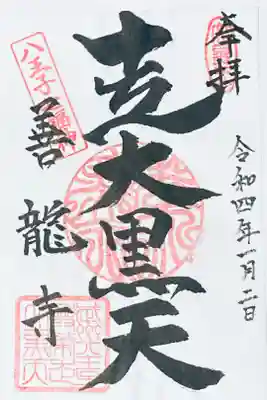 奉拝
令和四年一月二日
走大黒天
八王子
福神
善龍寺